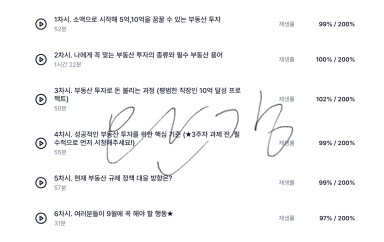 1차시. 소액으로 시작해 5억,10억을 꿈꿀 수 있는 부동산 투자
재생률 99% / 200%
52분
2차시. 나에게 꼭 맞는 부동산 투자의 종류와 필수 부동산 용어
재생률 100% / 200%
1시간 22분
3차시. 부동산 투자로 돈 불리는 과정 (평범한 직장인 10억 달성 프로
젝트)
재생률 102% / 200%
50분
4차시. 성공적인 부동산 투자를 위한 핵심 기준 (★3주차 과제 전, 필
수적으로 먼저 시청해주세요!)
재생률 99% / 200%
55분
5차시. 현재 부동산 규제 정책 대응 방향은?
재생률 99% / 200%
57분
6차시. 여러분들이 9월에 꼭 해야 할 행동★
재생률 97% / 200%
31분